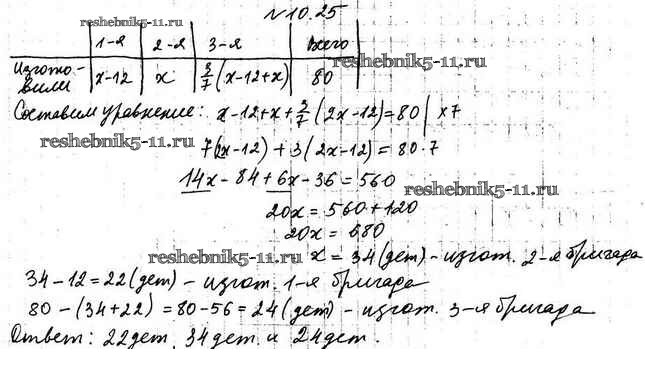 №10.25
reshebnik5-11.ru
1-я 2-я 3-я всего
reshebnik5-11.ru
Изгото-
вили x-12 x 3/7(x-12+x) 80
Составим уравнение: x-12+x+3/7(2x-12)=80| ×7
reshebnik5-11.ru
7(2x-12)+3(2x-12)=80·7
14x-84+6x-36=560
reshebnik5-11.ru
20x=560+120
20x=680
reshebnik5-11.ru
x=34(дет)-изгот. 2-я бригада
34-12=22(дет)-изгот. 1-я бригада
80-(34+22)=80-56=24(дет)-изгот. 3-я бригада
Ответ: 22дет, 34дет. и 24дет.